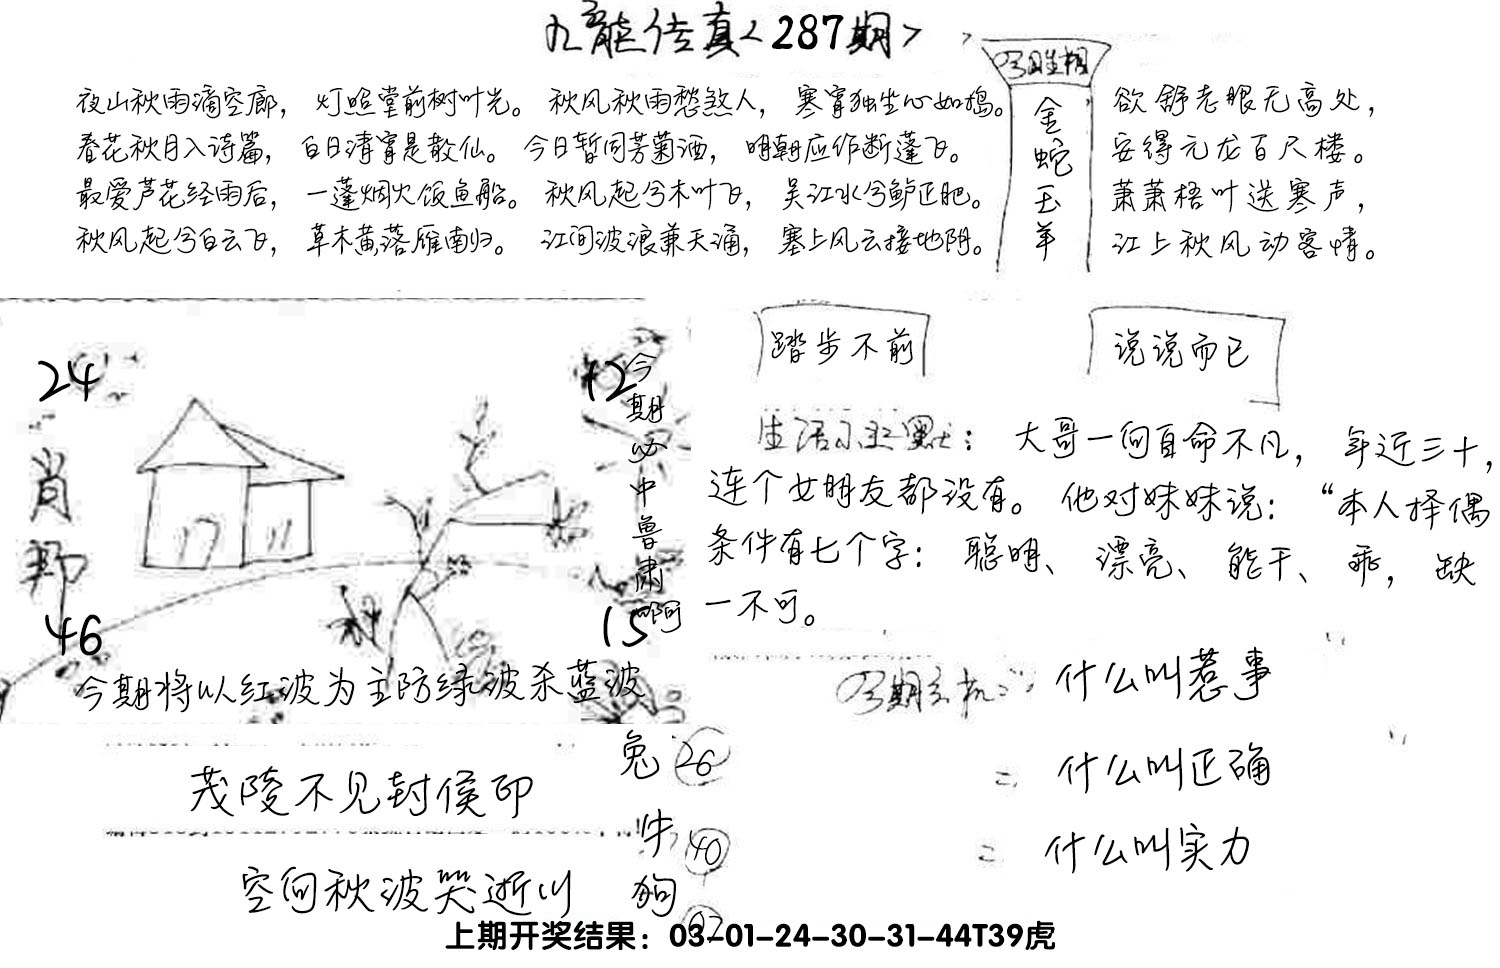 九龙传真<287期>
夜山秋雨滴空廊，灯照堂前树叶光。秋风秋雨愁煞人，寒宵独坐心如捣。
春花秋月入诗篇，白日清宵是散仙。今日暂同芳菊酒，明朝应作断蓬飞。
最爱芦花经雨后，一蓬烟火饭鱼船。秋风起兮木叶飞，吴江水兮鲈正肥。
秋风起兮白云飞，草木黄落雁南归。江间波浪兼天涌，塞上风云接地阴。
金蛇玉羊
欲舒老眼无高处，
安得元龙百尺楼。
萧萧梧叶送寒声，
江上秋风动客情。
24
12
肖
46
15
今期必中鲁肃啊
今期将以红波为主防绿波杀蓝波
踏步不前
说说而已
生活小幽默：大哥一向自命不凡，年近三十，
连个女朋友都没有。他对妹妹说：“本人择偶
条件有七个字：聪明、漂亮、能干、乖，缺
一不可。
什么叫惹事
什么叫正确
什么叫实力
茂陵不见封侯印
空向秋波哭逝川
兔 26
牛 40
狗
上期开奖结果：03-01-24-30-31-44T39虎